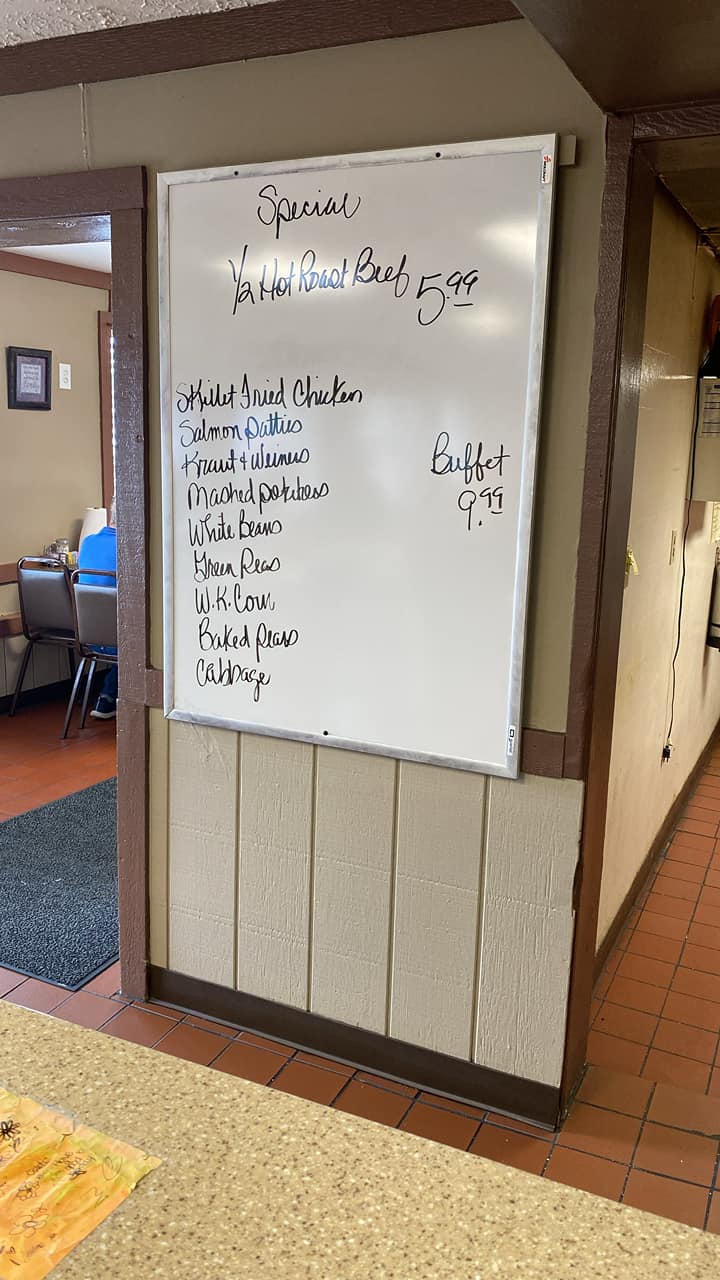 Special
1/2 Hot Roast Beef 5.99
Skillet Fried Chicken
Salmon Patties
Kraut & Weiners
Mashed potatoes
White Beans
Green Peas
W.K. Corn
Baked Pears
Cabbage
Buffet
9.99